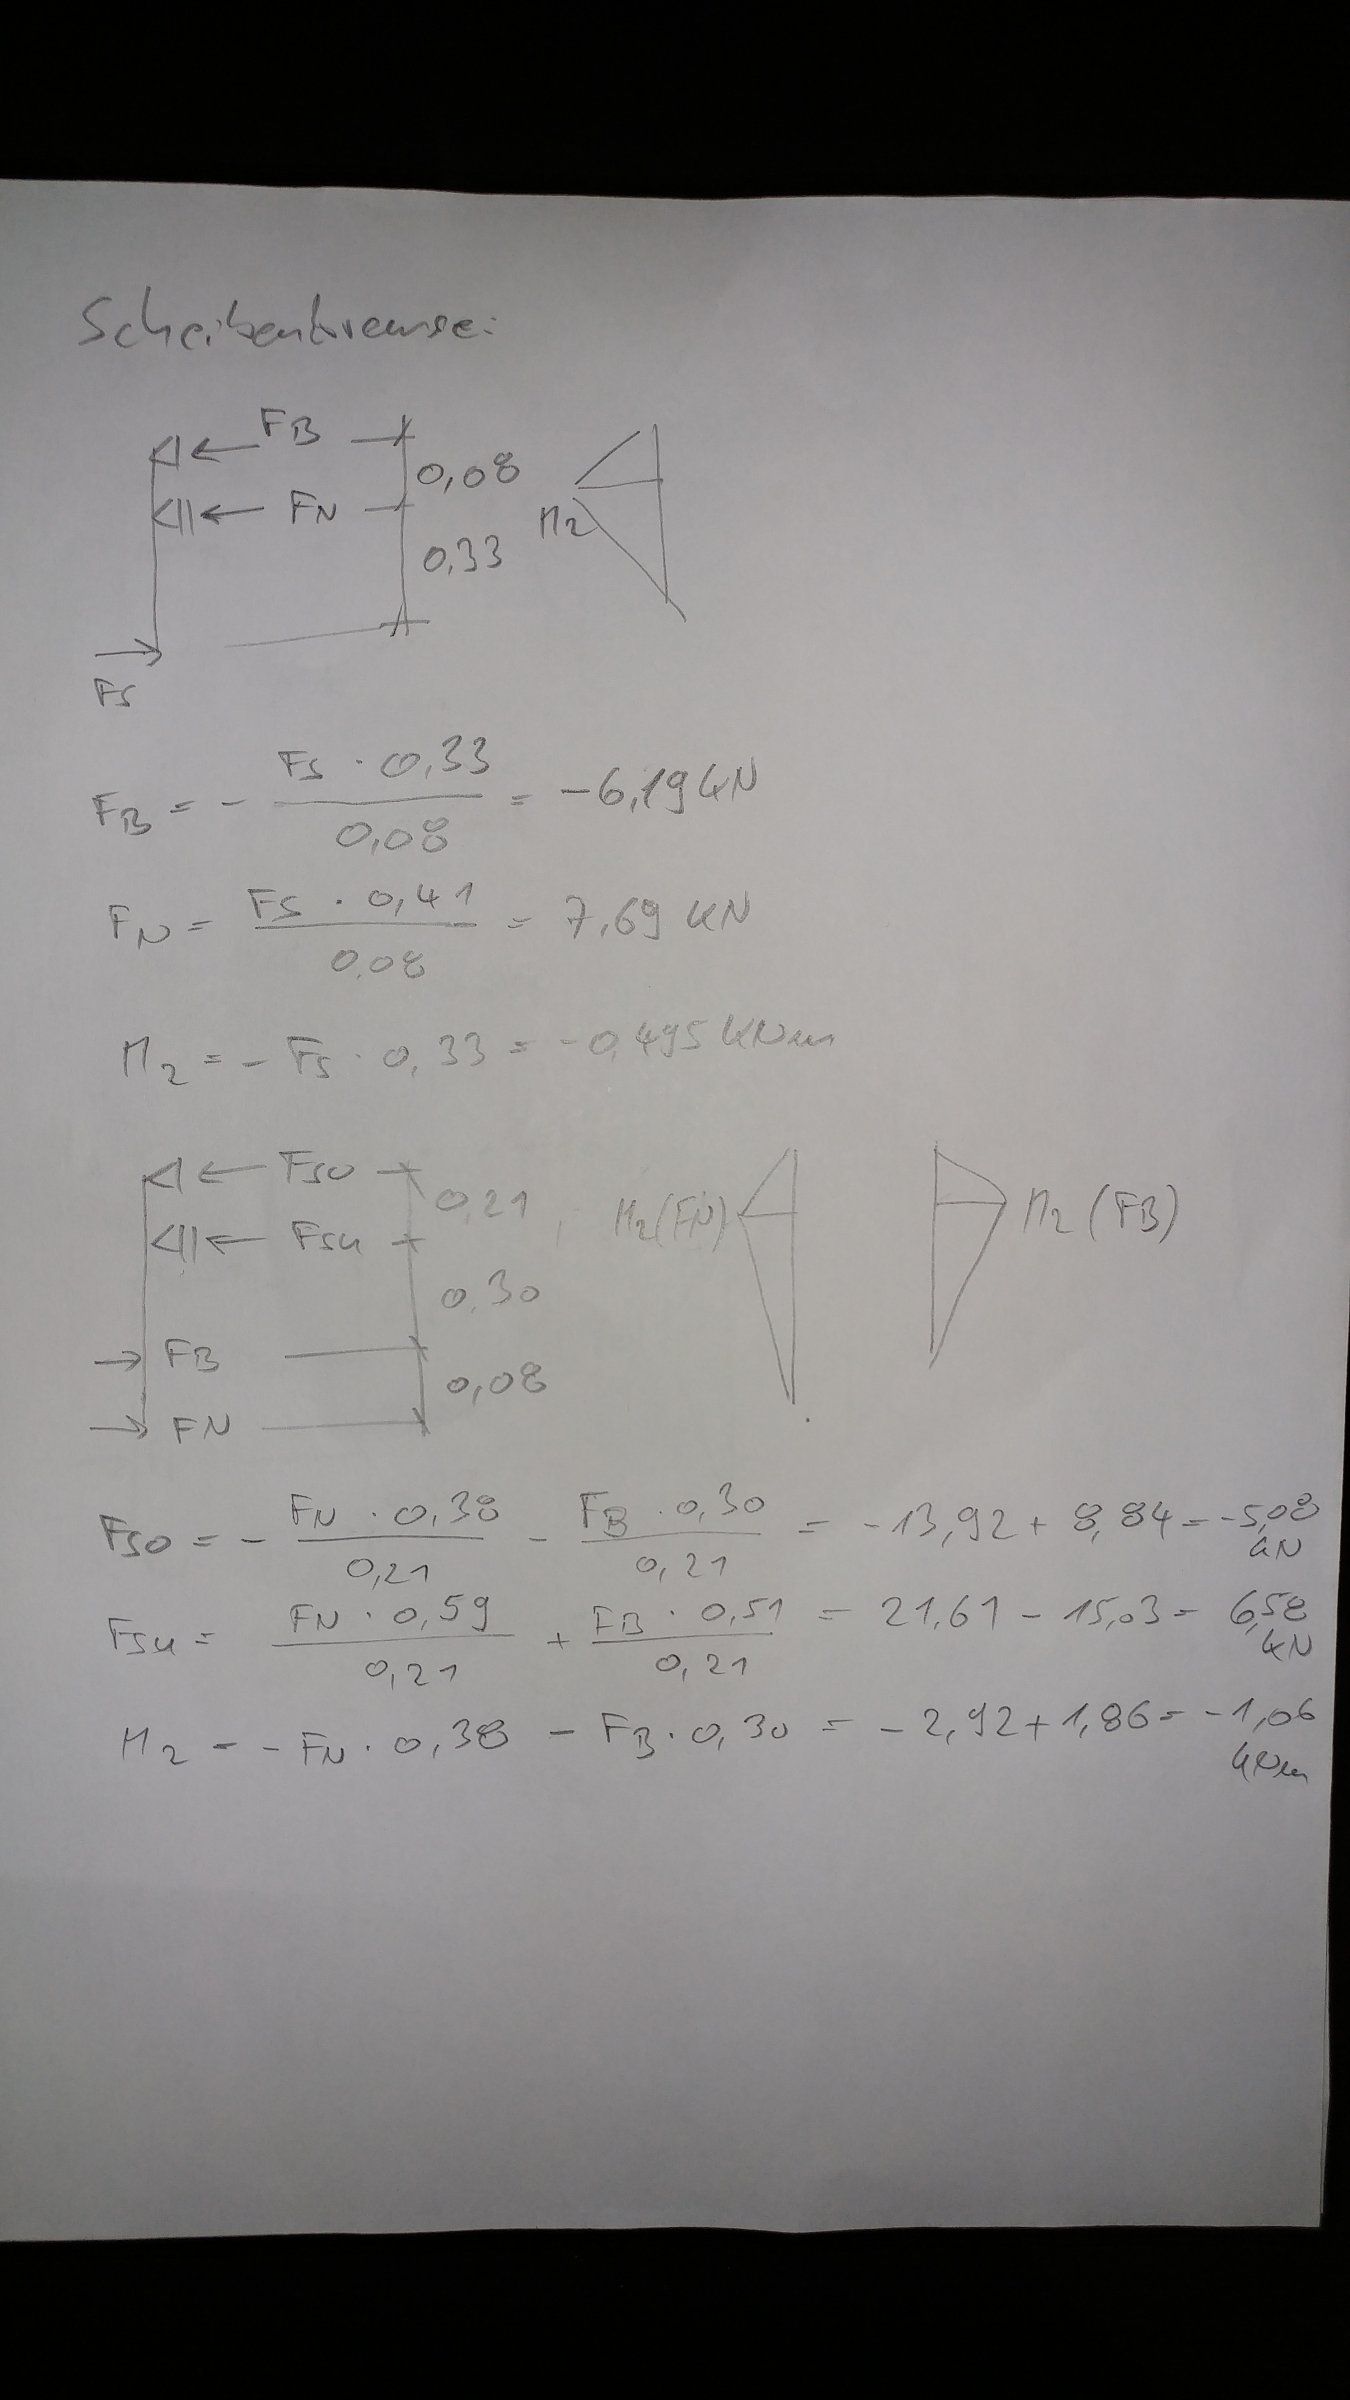 Scheibenbremse:
FB
0,08
FN
M2
0,33
Fs
FB = - Fs · 0,33 / 0,08 = -6,19 kN
FN = Fs · 0,41 / 0,08 = 7,69 kN
M2 = - Fs · 0,33 = -0,495 kNm
Fso
0,21
M2(FN)
M2(FB)
Fsu
0,30
FB
0,08
FN
Fso = - FN · 0,38 / 0,21 - FB · 0,30 / 0,21 = -13,92 + 8,84 = -5,08 kN
Fsu = FN · 0,59 / 0,21 + FB · 0,51 / 0,21 = 21,61 - 15,03 = 6,58 kN
M2 = - FN · 0,38 - FB · 0,30 = -2,92 + 1,86 = -1,06 kNm